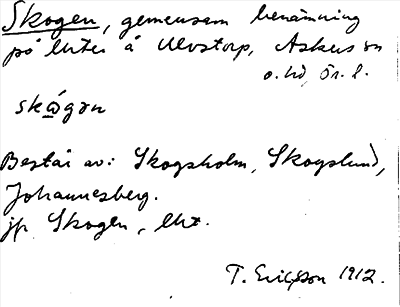 Skogen, gemensam benämning
på lhter å Ulvstorp, Askersun
o. hd, Ör. l.
skógən
Består av: Skogsholm, Skogslund,
Johannesberg.
jfr Skogen, lht.
T. Ericsson 1912.